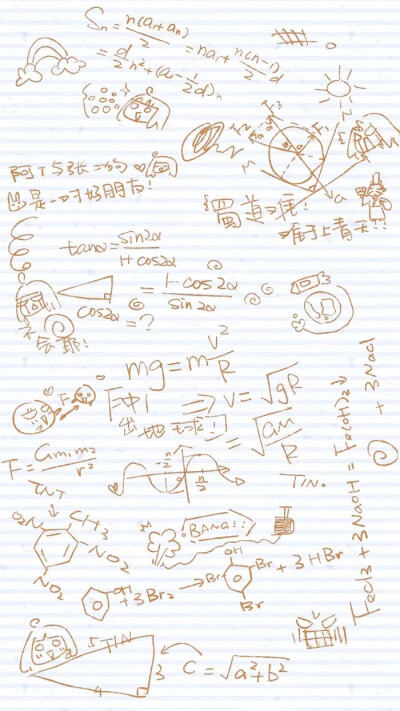 Sn = n(a₁+an)/2 = na₁ + n(n-1)/2 d
= d/2 n² + (a₁ - 1/2 d)n
阿T与张二狗
是一对好朋友!
蜀道难!
难于上青天!!
tanα = sin2α/1+cos2α
= 1-cos2α/sin2α
cos2α = ?
不会耶!
mg = m v²/R
F中1
⇒ v = √gR
出地球!
= √GM/R
F
F = Gm₁m₂/r²
-π/2
π/2
TIN.
TNT
O₂N
CH3
NO2
NO2
BANG!!
OH
+ 3Br₂ →
OH
Br
Br
Br
+ 3HBr
FeCl3 + 3NaOH = Fe(OH)3↓ + 3NaCl
5 TIN
3
4
C = √a²+b²